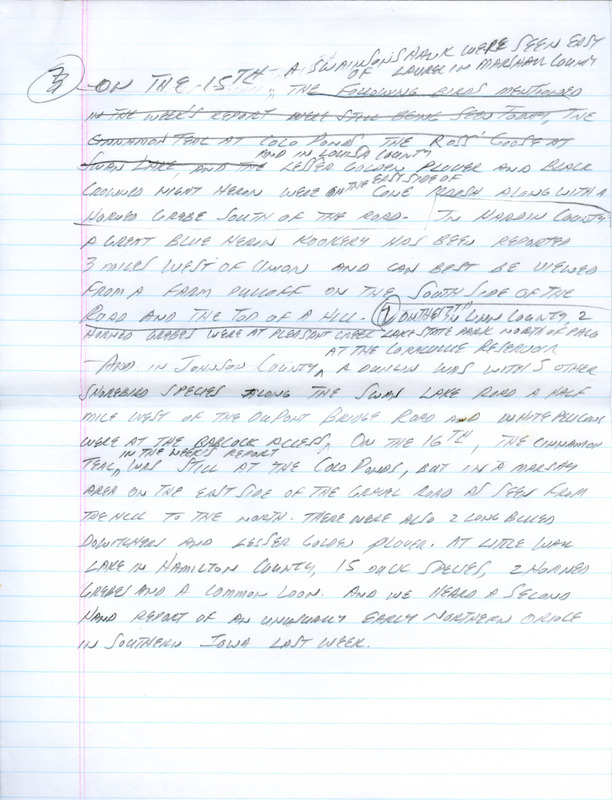 3
A SWAINSONS HAWK WERE SEEN EAST
OF LAUREL IN MARSHALL COUNTY
ON THE 15TH, THE FOLLOWING BIRDS MENTIONED
IN THE WEEK'S REPORT WERE STILL BEING SEEN TODAY, THE
CINNAMON TEAL AT COLO PONDS, THE ROSS' GOOSE AT
AND IN LOUISA COUNTY
SWAN LAKE, AND THE LESSER GOLDEN PLOVER AND BLACK
THE EAST SIDE OF
CROWNED NIGHT HERON WERE ON CONE MARSH ALONG WITH A
HORNED GREBE SOUTH OF THE ROAD. IN HARDIN COUNTY
A GREAT BLUE HERON ROOKERY HAS BEEN REPORTED
3 MILES WEST OF UNION AND CAN BEST BE VIEWED
FROM A FARM PULLOFF ON THE SOUTH SIDE OF THE
ROAD AND THE TOP OF A HILL. ON THE IN LINN COUNTY, 2
HORNED GREBES WERE AT PLEASANT CREEK LAKE STATE PARK NORTH OF PALO
AT THE CORALVILLE RESERVOIR
- AND IN JOHNSON COUNTY, A DUNLIN WAS WITH 5 OTHER
SHOREBIRD SPECIES ALONG THE SWAN LAKE ROAD A HALF
MILE WEST OF THE DUPONT BRIDGE ROAD AND WHITE PELICANS
WERE AT THE BABCOCK ACCESS, ON THE 16TH, THE CINNAMON
IN THE WEEK'S REPORT
TEAL, WAS STILL AT THE COLO PONDS, BUT IN A MARSHY
AREA ON THE EAST SIDE OF THE GRAVEL ROAD AS SEEN FROM
THE HILL TO THE NORTH. THERE WERE ALSO 2 LONG BILLED
DOWITCHERS AND LESSER GOLDEN PLOVER. AT LITTLE WALL
LAKE IN HAMILTON COUNTY, 15 DUCK SPECIES, 2 HORNED
GREBES AND A COMMON LOON. AND WE HEARD A SECOND
HAND REPORT OF AN UNUSUALLY EARLY NORTHERN ORIOLE
IN SOUTHERN IOWA LAST WEEK.